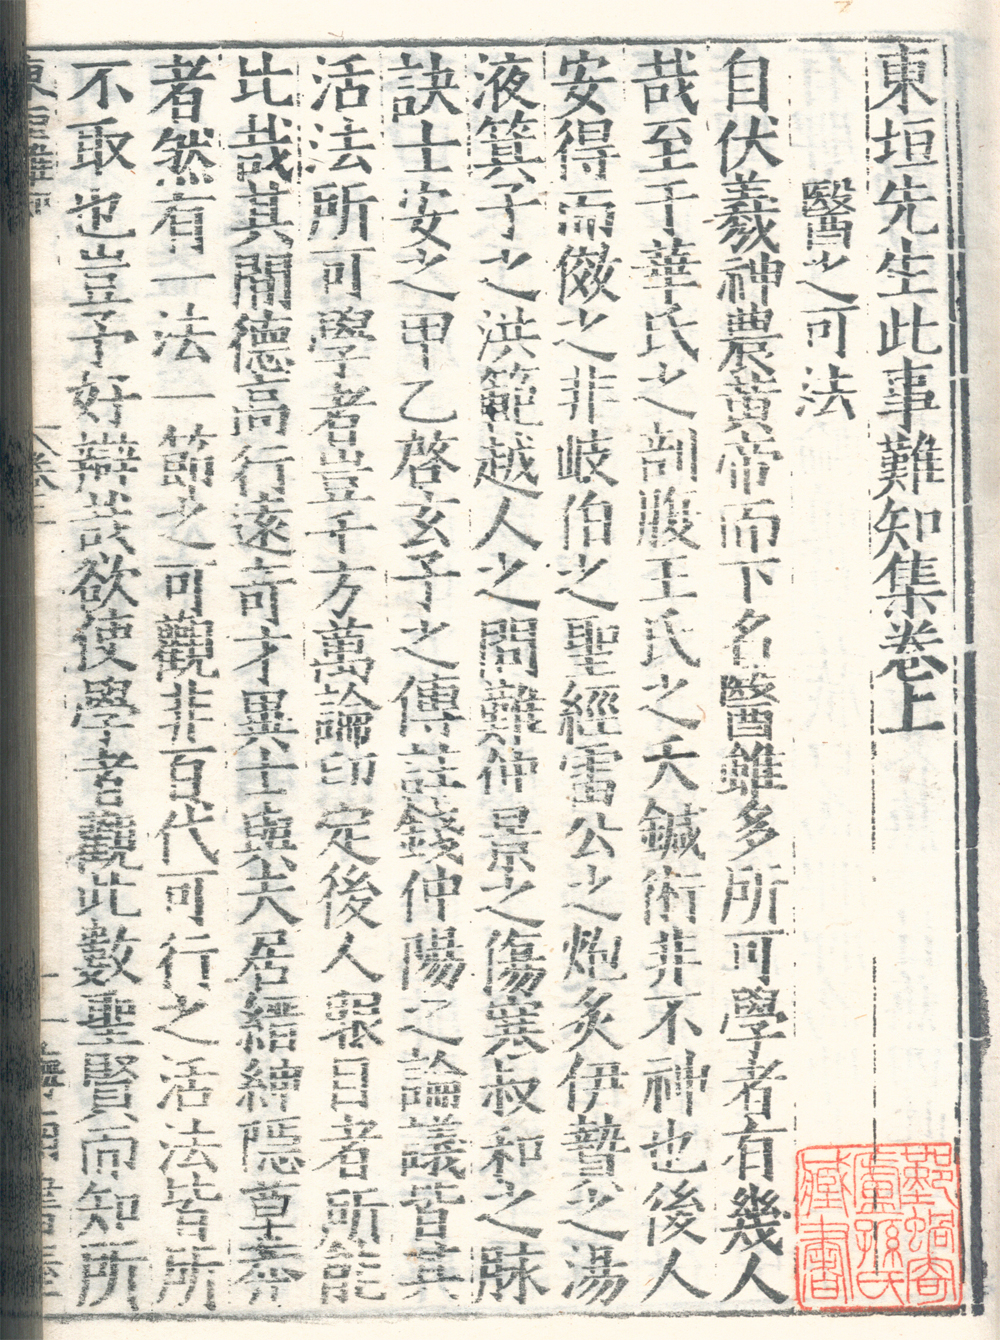 東垣先生此事難知集卷上
醫之可法
自伏羲神農黃帝而下名醫雖多所可學者有幾人
哉至于華氏之剖腹王氏之天鍼術非不神也後人
安得而傚之非岐伯之聖經雷公之炮炙伊贄之湯
液箕子之洪範越人之問難仲景之傷寒叔和之脉
訣士安之甲乙啓玄子之傳註錢仲陽之論議皆其
活法所可學者豈千方萬論印定後人眼目者所能
比哉其間德高行遠奇才異士與夫居縉紳隱草莽
者然有一法一節之可觀非百代可行之活法皆所
不取也豈予好辯哉欲使學者觀此數聖賢而知所